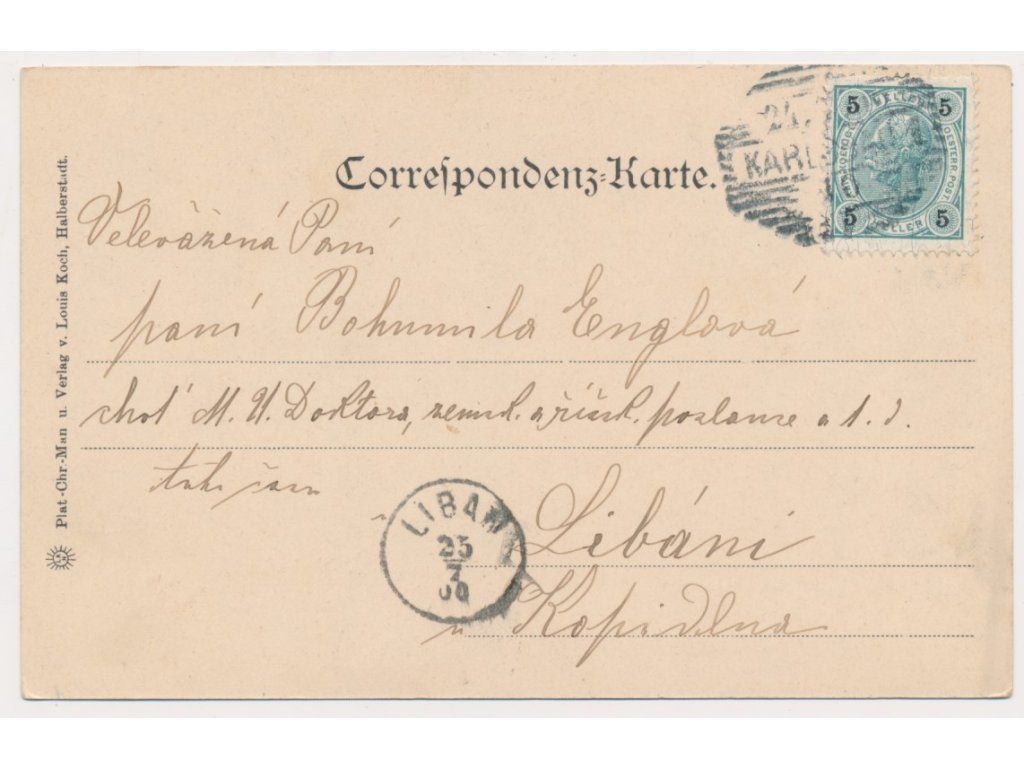 Correspondenz-Karte.
5 HELLER 5
OESTERR. POST.
5 HELLER 5
24.
KARL
Velevážená Paní
paní Bohumila Englová
choť M. U. Doktora, zemsk. a říšsk. poslance a t. d.
v Libáni
u Kopidlna
LIBAŇ
25
7
00
Plat.-Chr.-Man u. Verlag v. Louis Koch, Halberstadt.